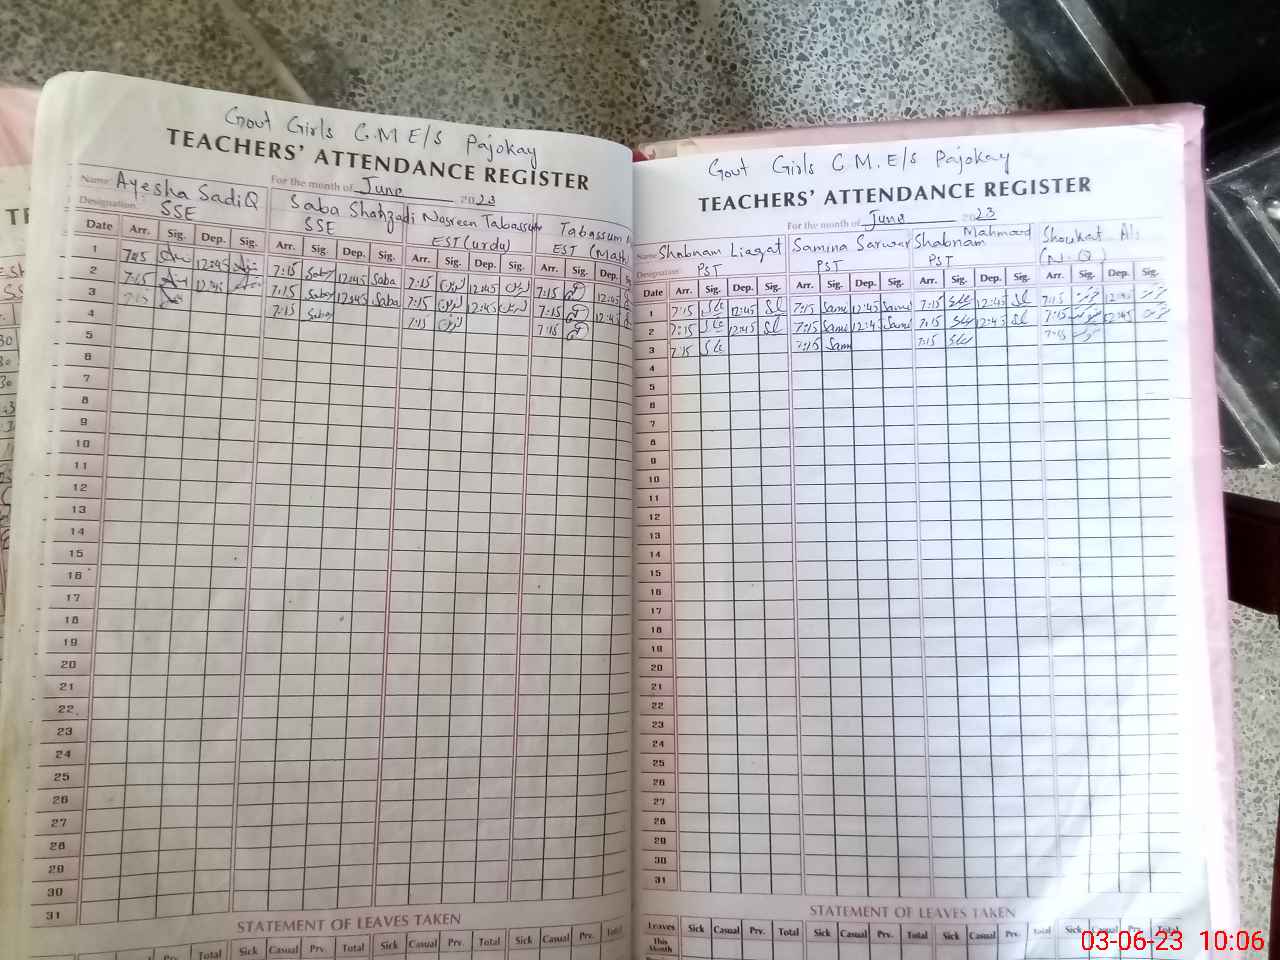 Govt Girls C.M E/S Pajokay
TEACHERS' ATTENDANCE REGISTER
For the month of June 2023
Name: Ayesha SadiQ Saba Shahzadi Nasreen Tabassum Tabassum
Designation: SSE SSE EST (urdu) EST (Math)
Date Arr. Sig. Dep. Sig. Arr. Sig. Dep. Sig. Arr. Sig. Dep. Sig. Arr. Sig. Dep.
1 7:15 12:45 7:15 Saba 12:45 Saba 7:15 نسرین 12:45 نسرین 7:15 12:45
2 7:15 12:45 7:15 Saba 12:45 Saba 7:15 نسرین 12:45 نسرین 7:15 12:45
3 7:15 7:15 Saba 7:15 نسرین 7:15
4
5
6
7
8
9
10
11
12
13
14
15
16
17
18
19
20
21
22
23
24
25
26
27
28
29
30
31
STATEMENT OF LEAVES TAKEN
Sick Casual Prv. Total Sick Casual Prv. Total Sick Casual Prv. Total
Govt Girls C.M.E/s Pajokay
TEACHERS' ATTENDANCE REGISTER
For the month of June 2023
Name: Shabnam Liaqat Samina Sarwar Shabnam Mahmood Shoukat Ali
Designation: PST PST PST (N.Q)
Date Arr. Sig. Dep. Sig. Arr. Sig. Dep. Sig. Arr. Sig. Dep. Sig. Arr. Sig. Dep. Sig.
1 7:15 12:45 7:15 Sami 12:45 Sami 7:15 12:45 7:15 12:45
2 7:15 12:45 7:15 Sami 12:45 Sami 7:15 12:45 7:15 12:45
3 7:15 7:15 Sami 7:15 7:15
4
5
6
7
8
9
10
11
12
13
14
15
16
17
18
19
20
21
22
23
24
25
26
27
28
29
30
31
STATEMENT OF LEAVES TAKEN
Leaves Sick Casual Prv. Total Sick Casual Prv. Total Sick Casual Prv. Total Sick Casual Prv. Total
This
Month
03-06-23 10:06